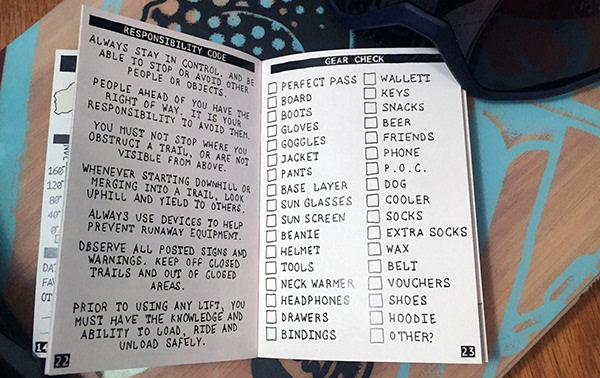 RESPONSIBILITY CODE
ALWAYS STAY IN CONTROL, AND BE
ABLE TO STOP OR AVOID OTHER
PEOPLE OR OBJECTS.
PEOPLE AHEAD OF YOU HAVE THE
RIGHT OF WAY. IT IS YOUR
RESPONSIBILITY TO AVOID THEM.
YOU MUST NOT STOP WHERE YOU
OBSTRUCT A TRAIL, OR ARE NOT
VISIBLE FROM ABOVE.
WHENEVER STARTING DOWNHILL OR
MERGING INTO A TRAIL, LOOK
UPHILL AND YIELD TO OTHERS.
ALWAYS USE DEVICES TO HELP
PREVENT RUNAWAY EQUIPMENT.
OBSERVE ALL POSTED SIGNS AND
WARNINGS. KEEP OFF CLOSED
TRAILS AND OUT OF CLOSED
AREAS.
PRIOR TO USING ANY LIFT, YOU
MUST HAVE THE KNOWLEDGE AND
ABILITY TO LOAD, RIDE AND
UNLOAD SAFELY.
22
GEAR CHECK
PERFECT PASS
BOARD
BOOTS
GLOVES
GOGGLES
JACKET
PANTS
BASE LAYER
SUN GLASSES
SUN SCREEN
BEANIE
HELMET
TOOLS
NECK WARMER
HEADPHONES
DRAWERS
BINDINGS
WALLETT
KEYS
SNACKS
BEER
FRIENDS
PHONE
P.O.C.
DOG
COOLER
SOCKS
EXTRA SOCKS
WAX
BELT
VOUCHERS
SHOES
HOODIE
OTHER?
23
160°
120°
80°
40°
0°
14